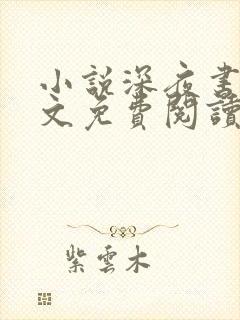 小說深夜書
文免費閱讀
紫雲木